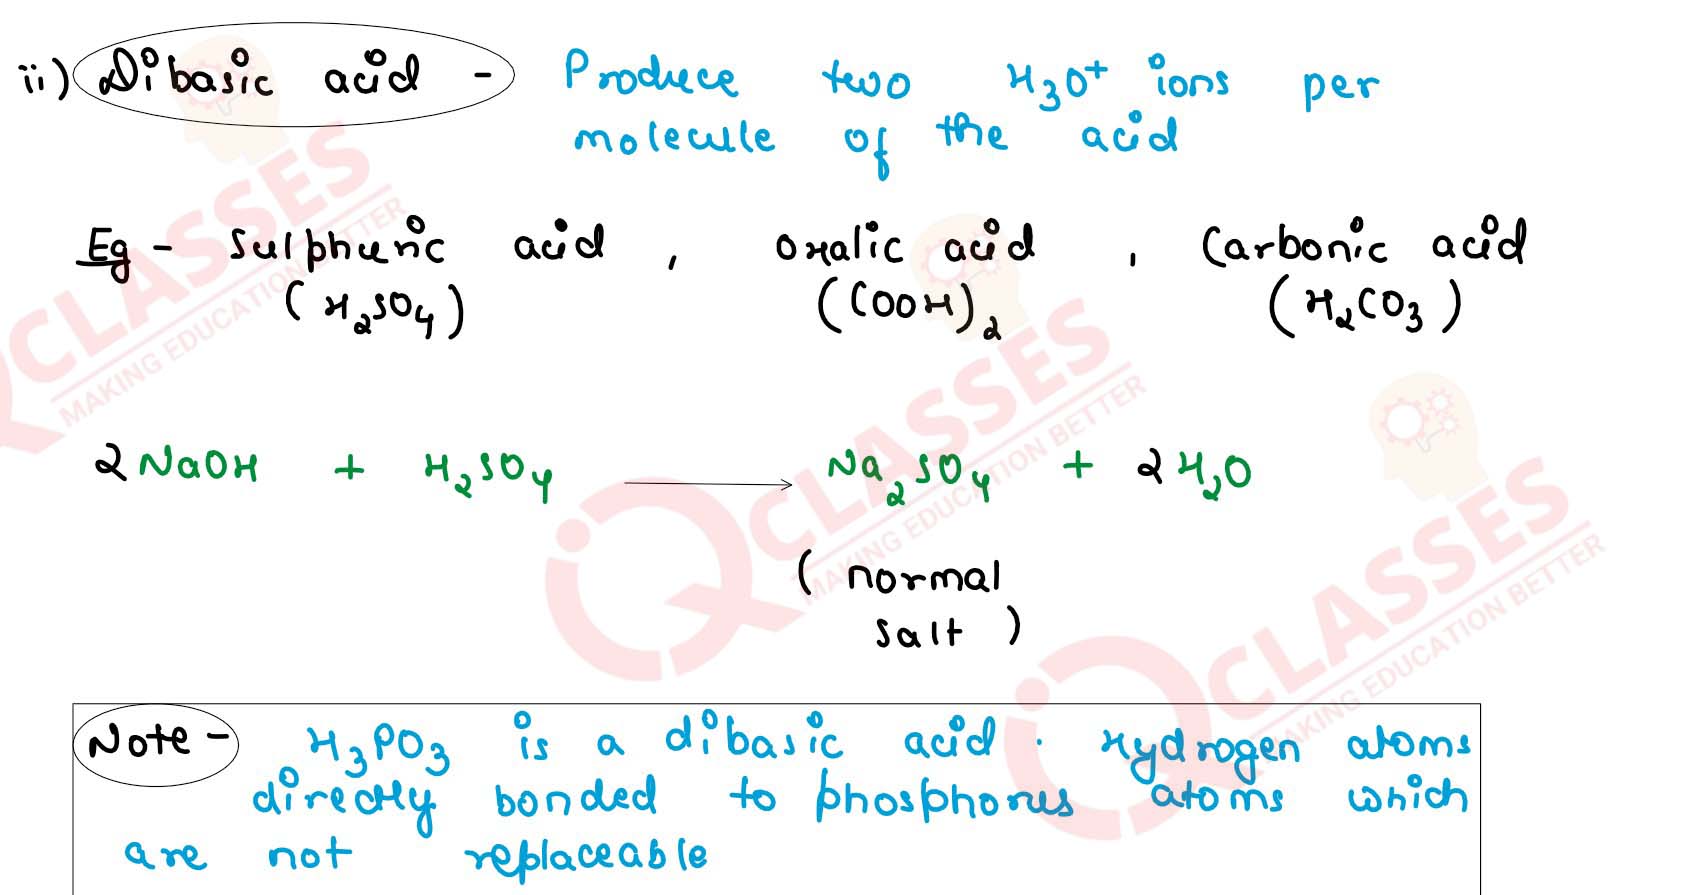 ii) Dibasic acid - Produce two H₃O⁺ ions per
molecule of the acid
Eg - Sulphuric acid , Oxalic acid , Carbonic acid
(H₂SO₄) (COOH)₂ (H₂CO₃)
2NaOH + H₂SO₄ ⟶ Na₂SO₄ + 2H₂O
(normal
salt)
Note - H₃PO₃ is a dibasic acid. Hydrogen atoms
directly bonded to phosphorus atoms which
are not replaceable
CLASSES
MAKING EDUCATION BETTER
iQ CLASSES
MAKING EDUCATION BETTER
iQ CLASSES
MAKING EDUCATION BETTER